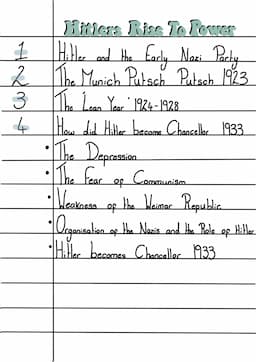 Hitlers Rise To Power
1 Hitler and the Early Nazi Party
2 The Munich Putsch Putsch 1923
3 The Lean Year '1924-1928
4 How did Hitler become Chancellor 1933
• The Depression
• The Fear of Communism
• Weakness of the Weimar Republic
• Organisation of the Nazis and the Role of Hitler
• Hitler becomes Chancellor 1933